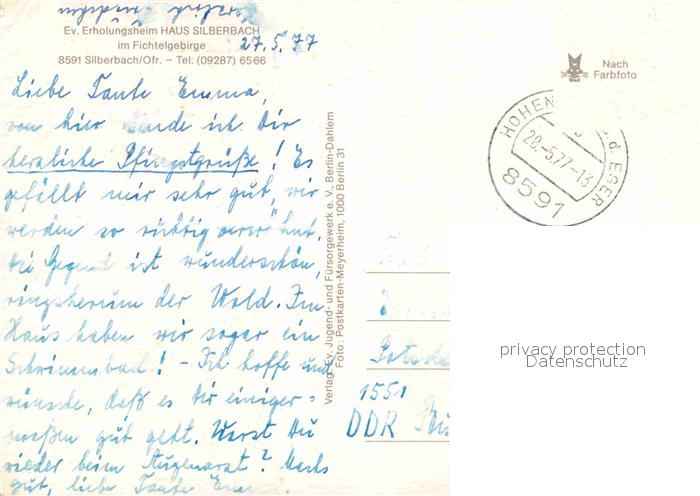 herzlich
Ev. Erholungsheim HAUS SILBERBACH
im Fichtelgebirge
8591 Silberbach/Ofr. – Tel. (09287) 6566
27.5.77
Liebe Tante Emma,
von hier sende ich Dir
herzliche Pfingstgrüße! Es
gefällt mir sehr gut, wir
werden so richtig verwöhnt.
Die Gegend ist wunderschön,
ringsherum der Wald. Im
Haus haben wir sogar ein
Schwimmbad! – Ich hoffe und
wünsche, daß es Dir einiger=
maßen gut geht. Warst Du
wieder beim Augenarzt? Machs
gut, liebe Tante Emma.
Verlag: Ev. Jugend- und Fürsorgewerk e. V., Berlin-Dahlem
Foto: Postkarten-Meyerheim, 1000 Berlin 31
Nach
Farbfoto
HOHEN d EGER
28.-5.77-13
8591
Potsda
1551
DDR
privacy protection
Datenschutz